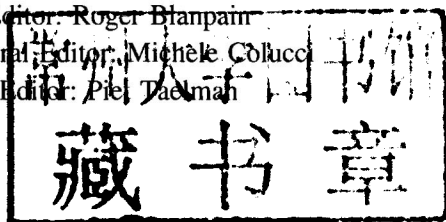 ditor: Roger Blanpain
ral Editor: Michele Colucci
Editor: Piet Taelman
常州大学图书馆
藏书章